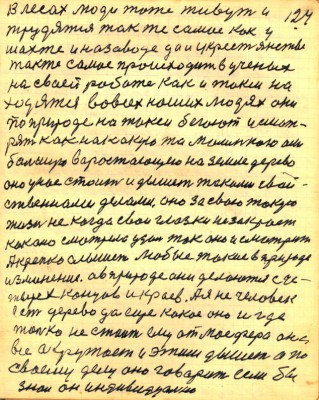 124
В лесах люди тоже живут и
трудятся так же самое как у
шахте и на заводе да и у крестьянстве
так же самое происходит в ученых
на своей работе как и токи на
ходятся во всех наших людях они
по природе на токи бегают и смот-
рят как на какую то машинного или
большую вырастающею на земле дерево
оно у нас стоит и дышет такими свой-
ственными делами, оно за свою такую
жизнь не когда свои глазки не закроет
как оно смотрит удал так оно и смотрит
А крепко слышет любые такие в природе
изменение. а в природе они делаются с че-
тырех концов и краев. А я не человек
есть дерево да еще какое оно и где
только не стоит ему атмосфера она
все окружает и этим дышет а по
своему делу оно говорит если бы
знал он индивидуально